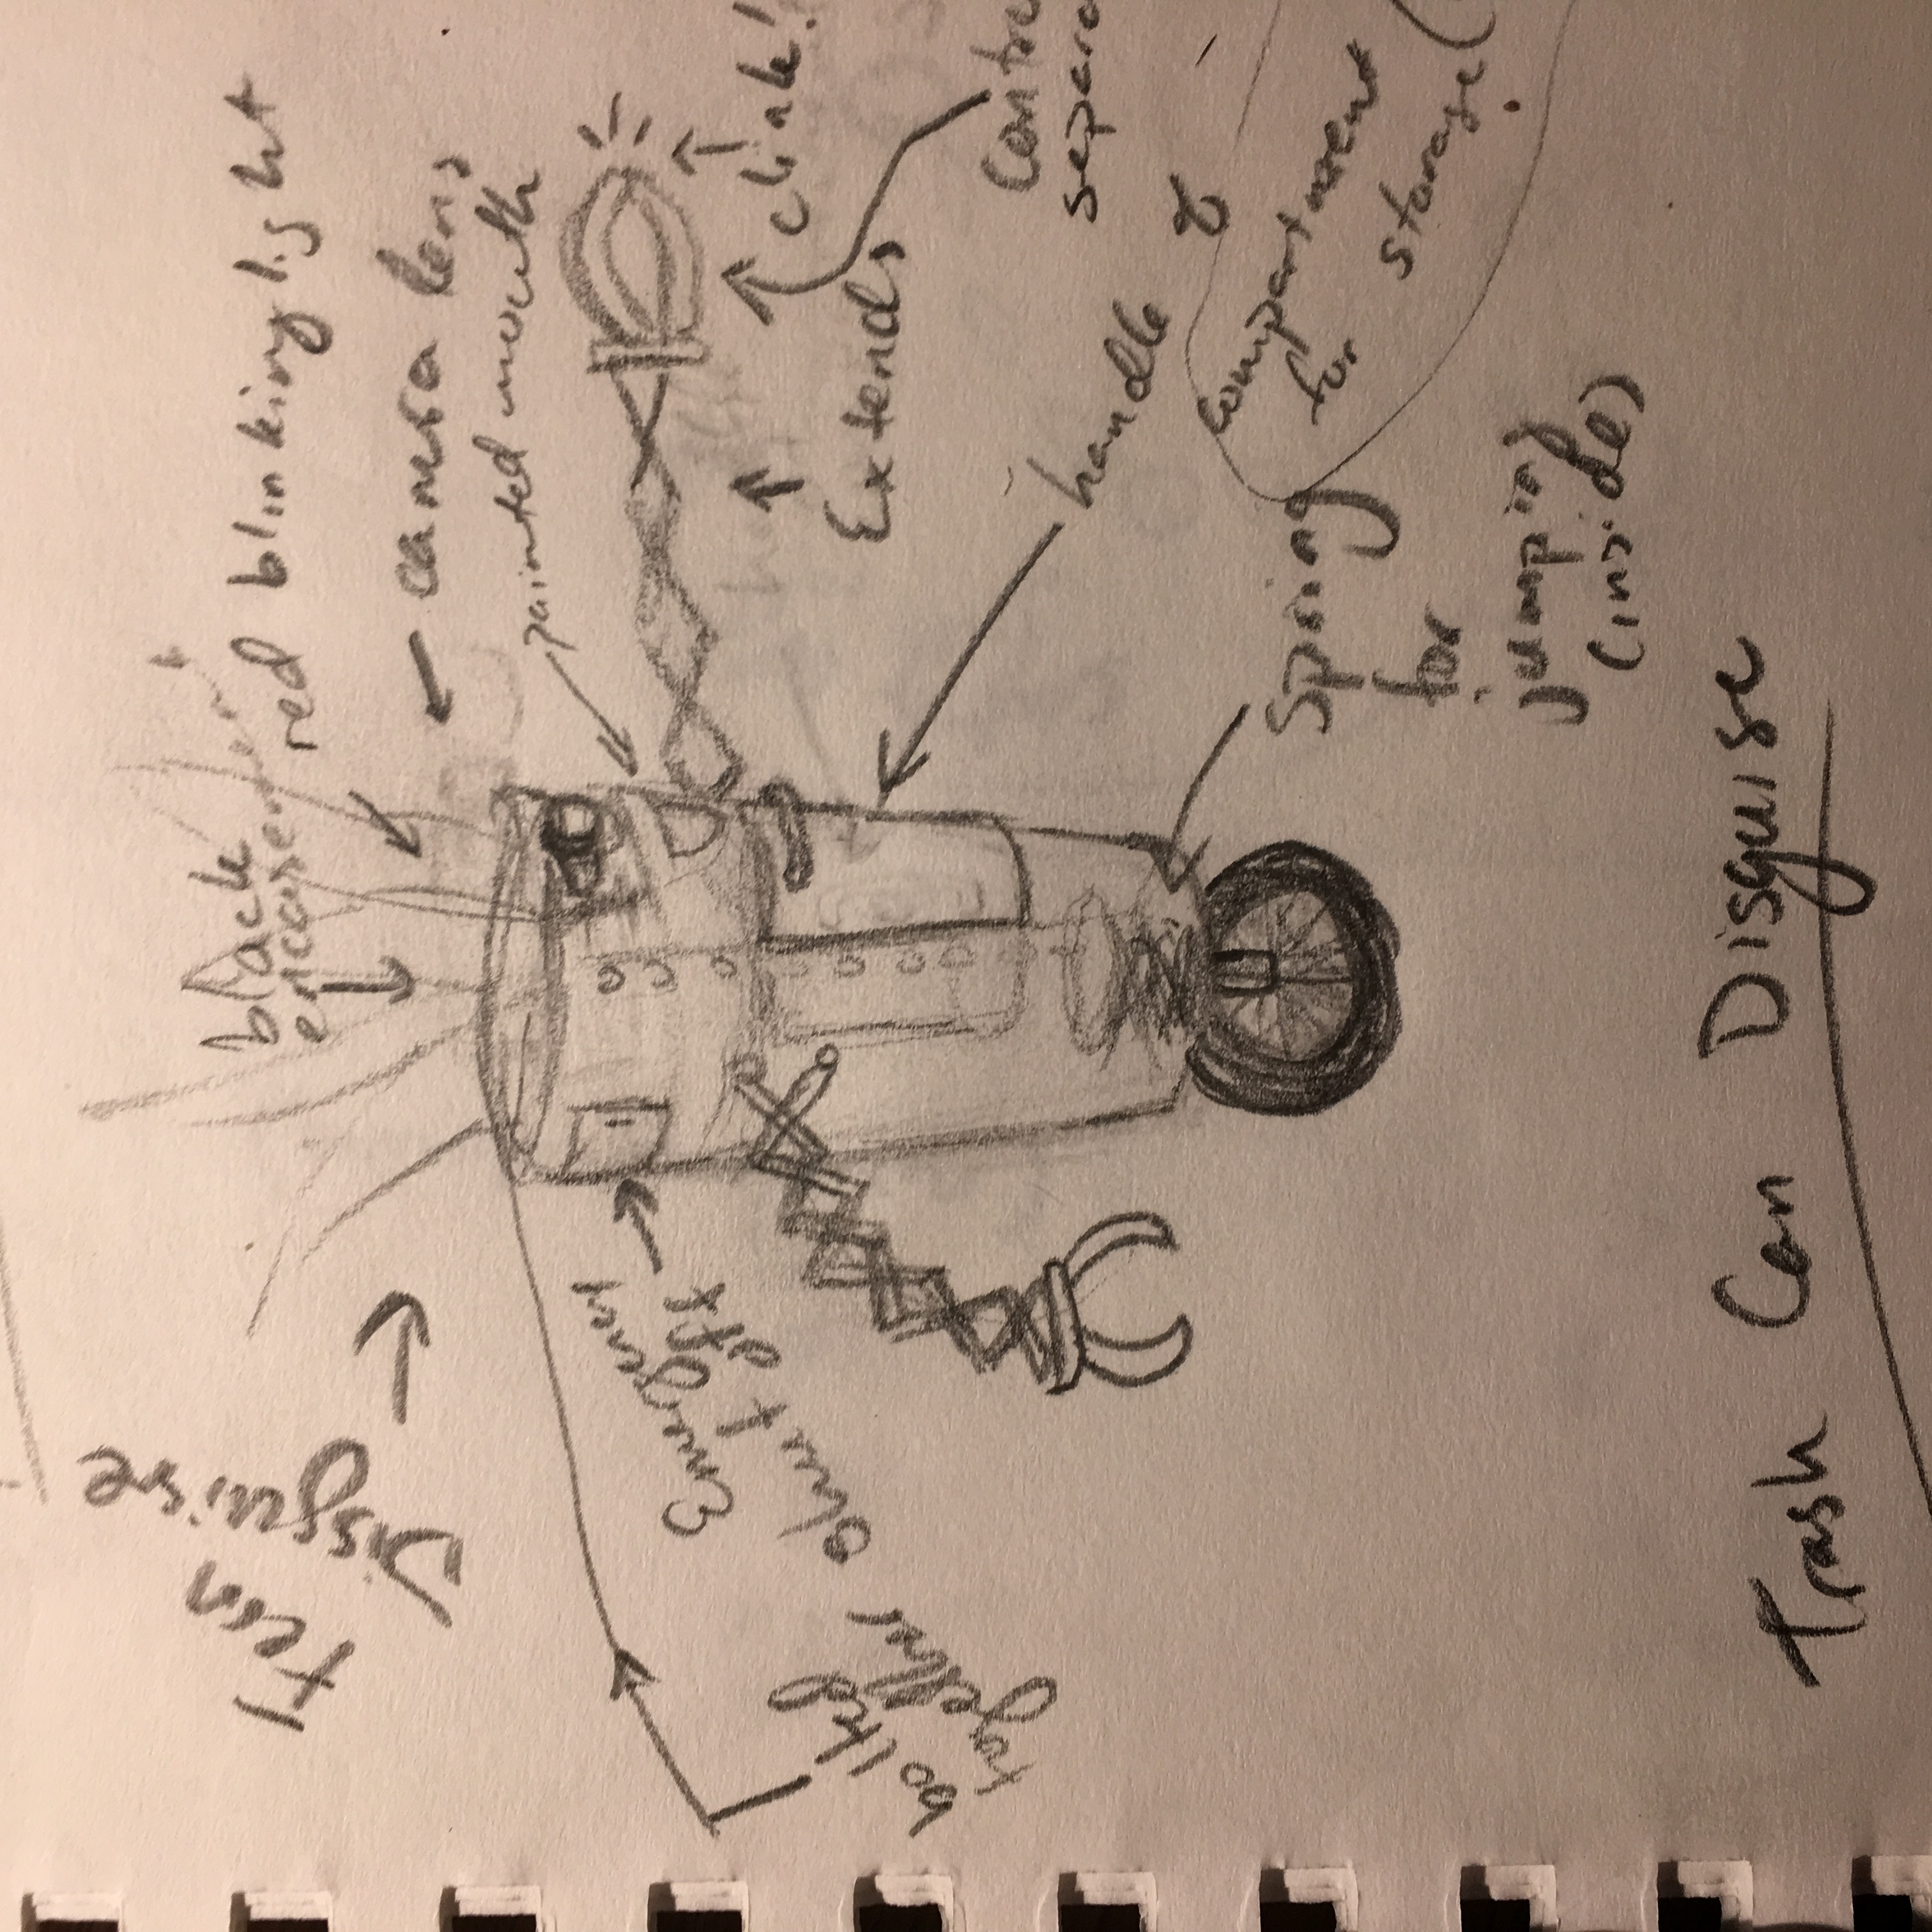 Fern
Disguise
black
encasement
red blinking light
camera lens
painted mouth
Emergency
shut off
bolted
together
Extends
clink!
handle of
compartment
for
storage (
Spring
for
jumping
(inside)
Trash Can Disguise